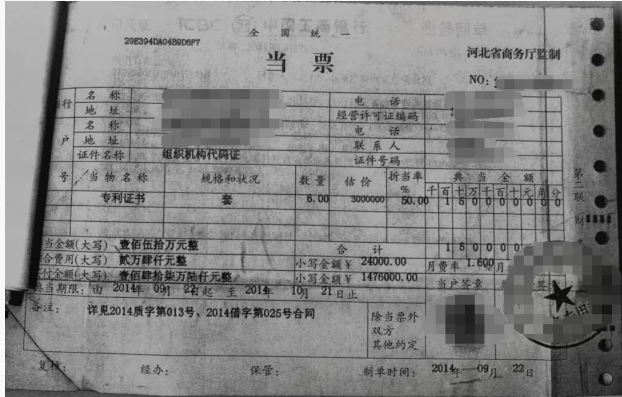 全国统一
29E394DA04B9D6F7
当票
河北省商务厅监制
NO:
行 名称 电话
地址 经营许可证编码
户 名称 电话
地址 联系人
证件名称 组织机构代码证 证件号码
号 当物名称 规格和状况 数量 估价 折当率% 典当金额
千百十万千百十元角分
专利证书 套 6.00 3000000 50.00 1 5 0 0 0 0 0 0 0
第二联
当金额(大写) 壹佰伍拾万元整 合计 1 5 0 0 0 0 0
合费用(大写) 贰万肆仟元整 小写金额¥ 24000.00 月费率 1.600 月
付金额(大写) 壹佰肆拾柒万陆仟元整 小写金额¥ 1476000.00 当户签章
典当期限: 由 2014年 09月 22日起 至 2014年 10月 21日止
备注: 详见2014质字第013号、2014借字第025号合同 除当票外双方其他约定
复核: 经办: 保管: 制单时间: 2014年 09月 22日